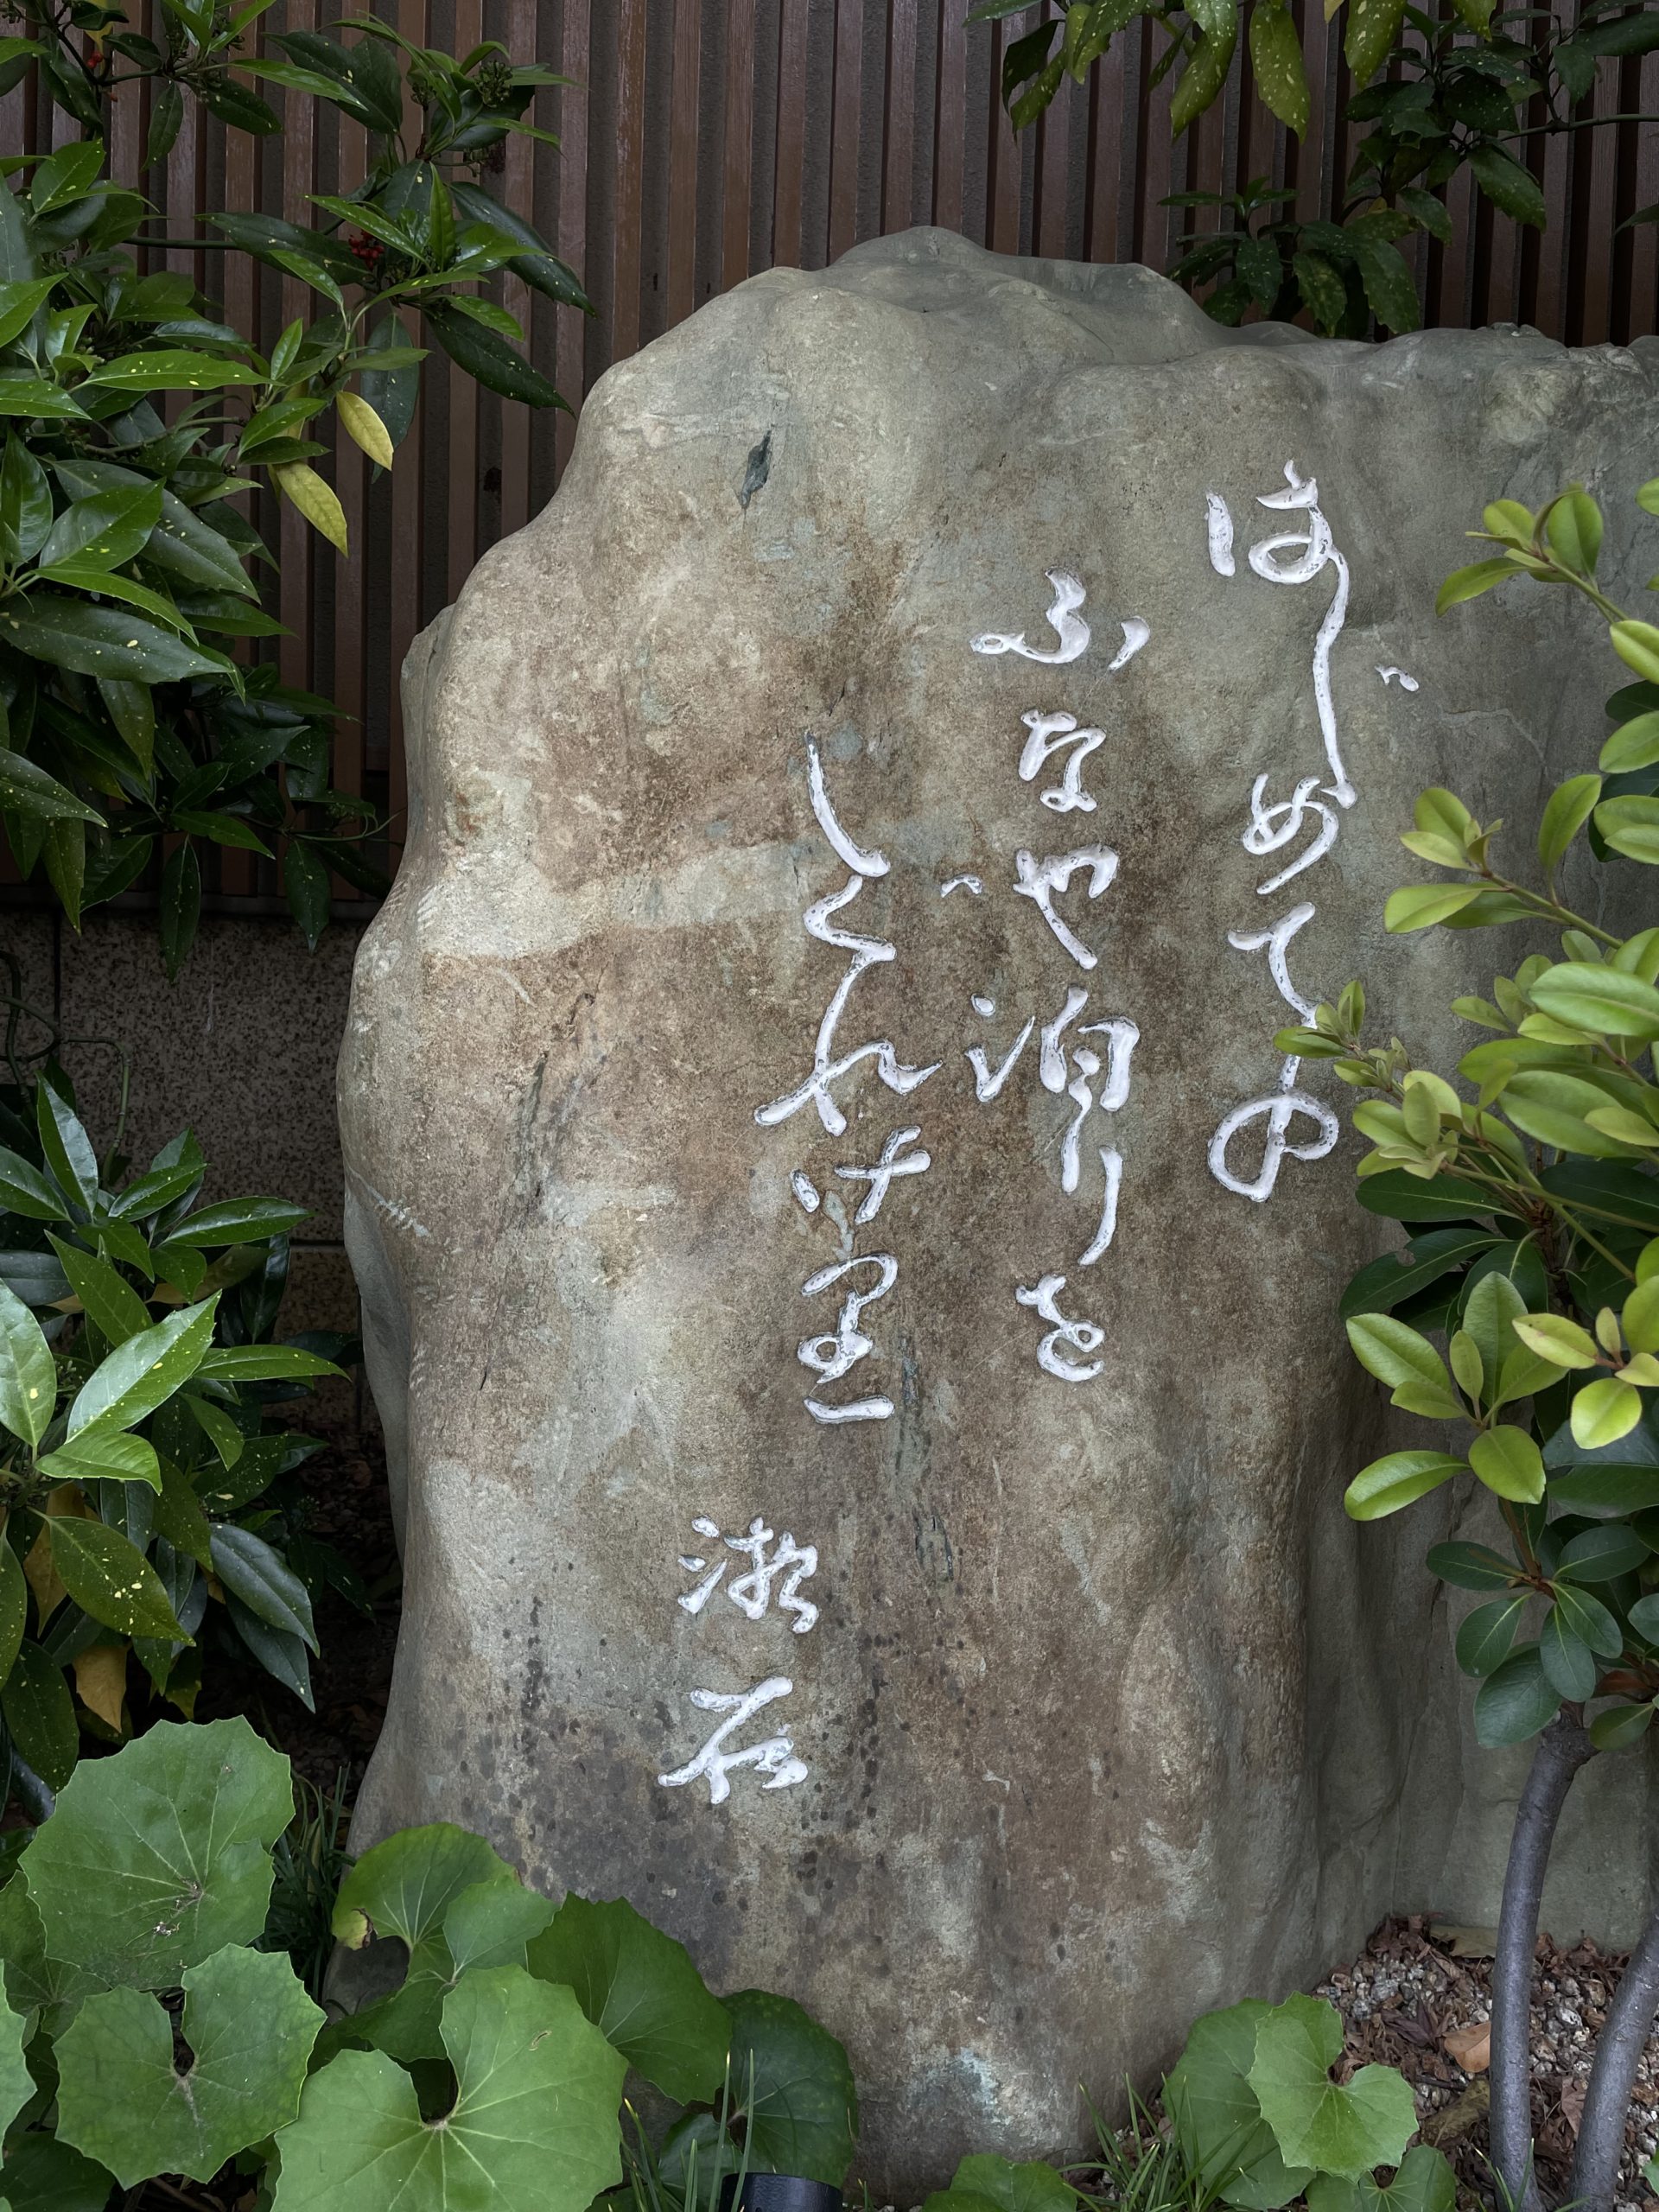 はじめての
ふなや泊りを
しぐれけり
漱石